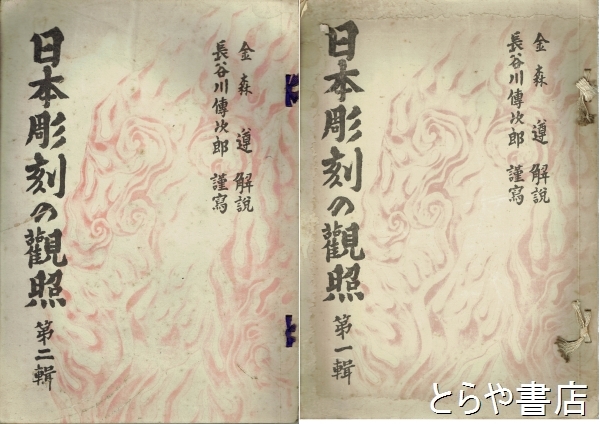 金森遵 解説
長谷川傳次郎 謹寫
日本彫刻の觀照
第一輯
金森遵 解説
長谷川傳次郎 謹寫
日本彫刻の觀照
第二輯
とらや書店